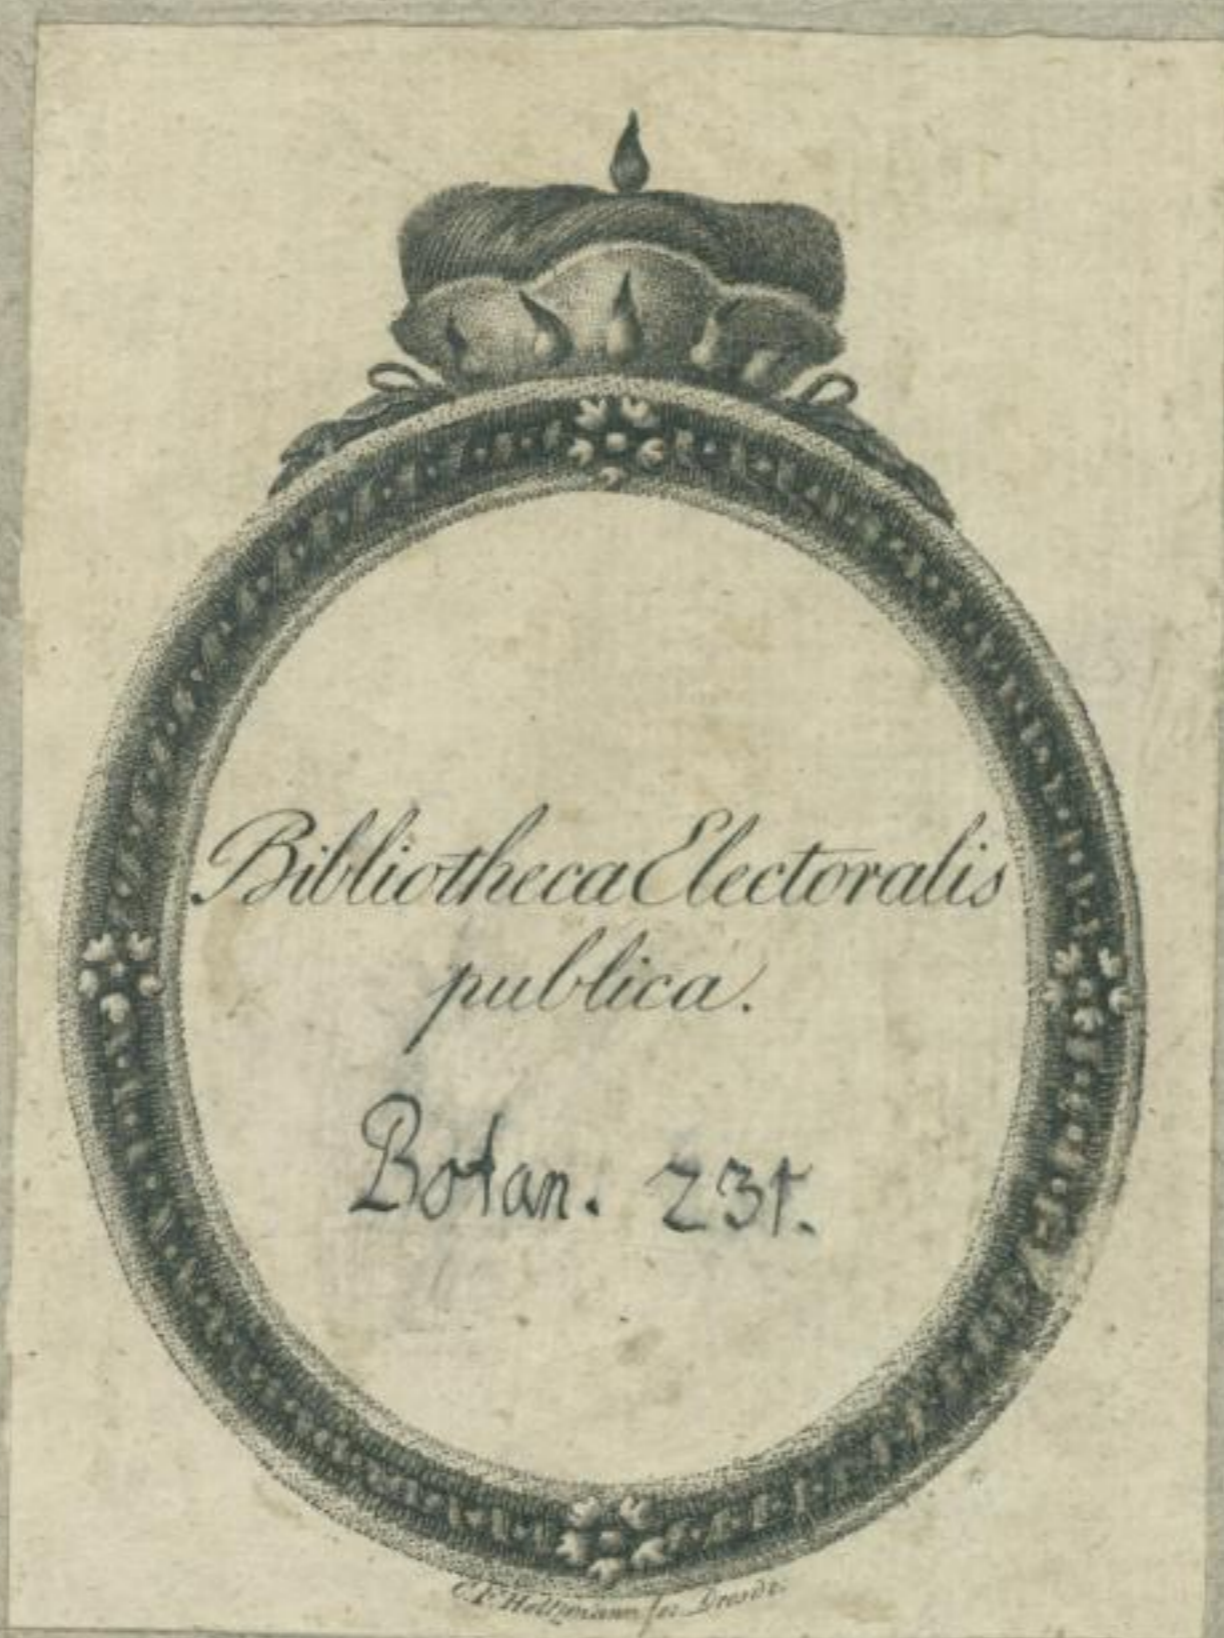 Bibliotheca Electoralis
publica.
Botan. 231.
C. F. Holtzmann fec. Dresdae.